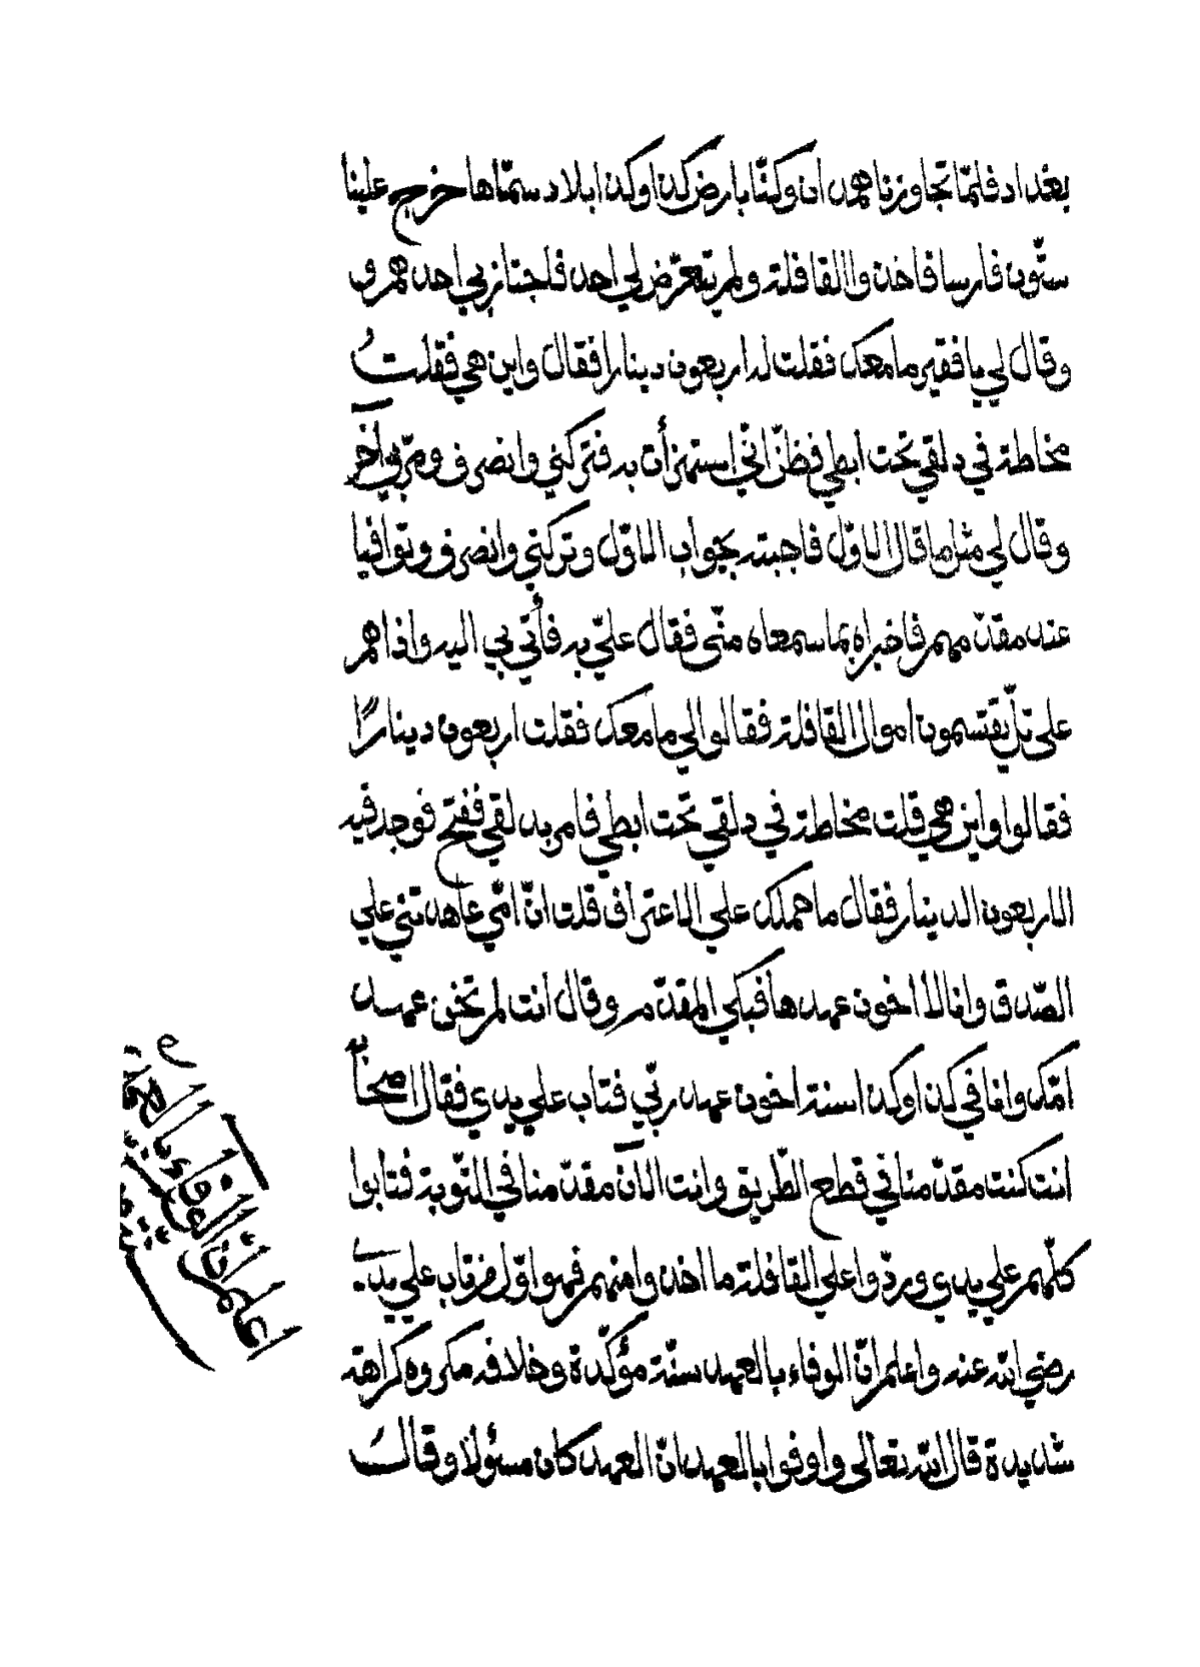 بغداد فلمّا تجاوزنا همدان وكنّا بارض كذا وكذا بلاد سمّاها خرج علينا
ستّون فارسا فاخذوا القافلة ولم يتعرّض لي احد فاجتاز بي احدهم و
وقال لي يا فقير ما معك فقلت له اربعون دينارا فقال واين هي فقلتُ
مخاطة في دلقي تحت ابطي فظنّ انّي استهزأن به فتركني وانصرف ومرّ بي آخر
وقال لي مثل ما قال الاوّل فاجبته بجواب الاوّل وتركني وانصرف وتوافيا
عند مقدّمهم فاخبراه بما سمعاه منّي فقال عليّ به فأتي بي اليه واذا هم
على تلّ يقتسمون اموال القافلة فقالوا لي ما معك فقلت اربعون دينارًا
فقالوا واين هي قلت مخاطة في دلقي تحت ابطي فامر بدلقي ففتح فوجد فيه
الاربعون الدينار فقال ما حملك علي الاعتراف قلت انّ امّي عاهدتني علي
الصّدق وانا لا اخون عهدها فبكي المقدّم وقال انت لم تخن عهد
امّك وانا في كذا وكذا سنة اخون عهد ربّي فتاب علي يدي فقال اصحابه
انت كنت مقدّمنا في قطع الطّريق وانت الآن مقدّمنا في التّوبة فتابوا
كلّهم علي يدي وردّوا علي القافلة ما اخذوا منهم فهو اوّل من تاب علي يدي
رضي الله عنه واعلم انّ الوفاء بالعهد سنّة مؤكّدة وخلافه مكروه كراهة
شديدة قال الله تعالى واوفوا بالعهد انّ العهد كان مسئولا وقال
اعلم انّ الوفاء بالعهد